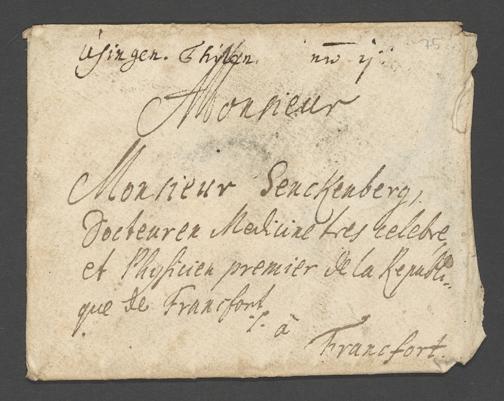 Usingen. nro ij.
75
Monsieur
Monsieur Senckenberg,
Docteur en Medicine tres celebre
et Physicien premier de la Republi-
que de Francfort
à
Francfort.